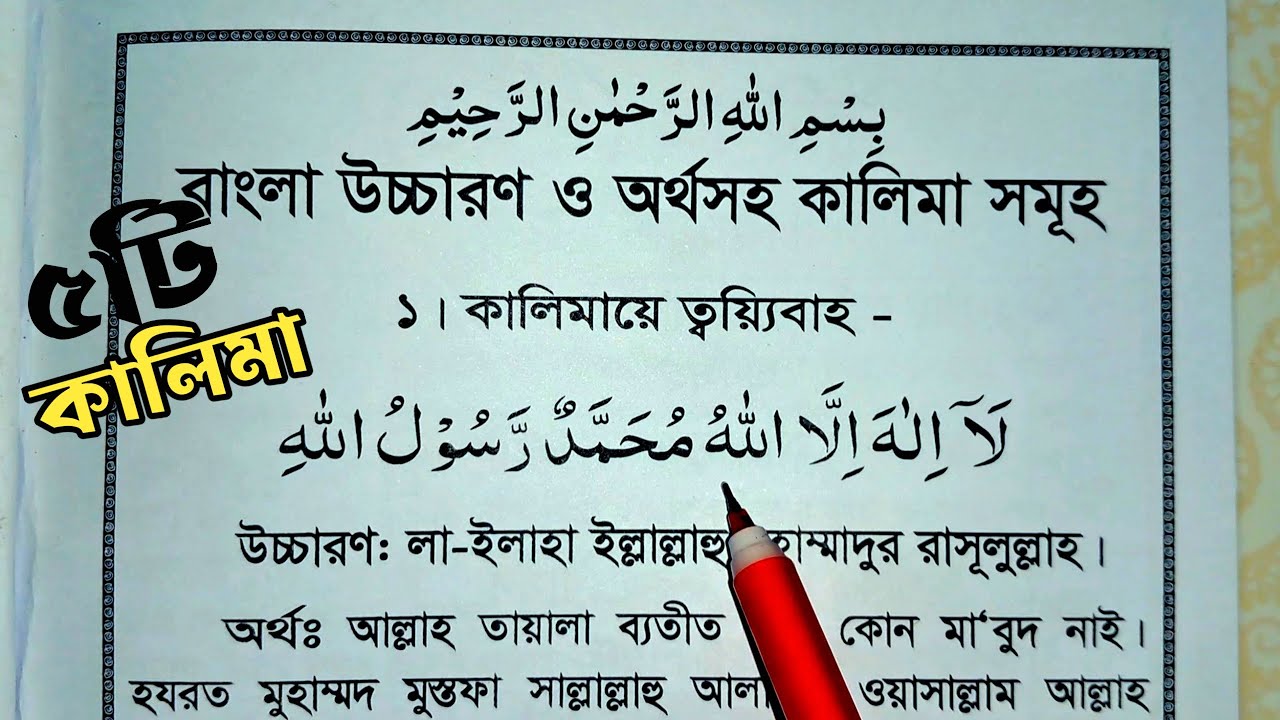 بِسْمِ اللهِ الرَّحْمٰنِ الرَّحِيْمِ
বাংলা উচ্চারণ ও অর্থসহ কালিমা সমূহ
৫টি
কালিমা
১। কালিমায়ে ত্বয়্যিবাহ -
لَآ اِلٰهَ اِلَّا اللهُ مُحَمَّدٌ رَّسُوْلُ اللهِ
উচ্চারণ: লা-ইলাহা ইল্লাল্লাহু রাসূলুল্লাহ।
অর্থঃ আল্লাহ তায়ালা ব্যতীত কোন মা‘বুদ নাই।
হযরত মুহাম্মদ মুস্তফা সাল্লাল্লাহু ওয়াসাল্লাম আল্লাহ